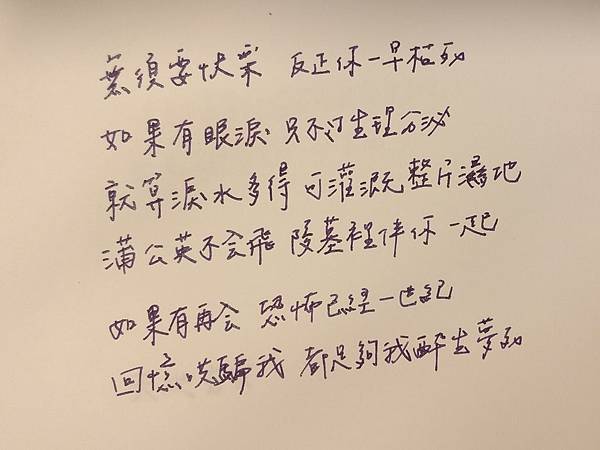 無須要快樂 反正你一早枯死
如果有眼淚 只不过生理分泌
就算淚水多得 可灌溉整片濕地
蒲公英不会飛 陵墓裡伴你一起
如果有再会 恐怖已經一世紀
回憶哄騙我 都足夠我醉生夢死